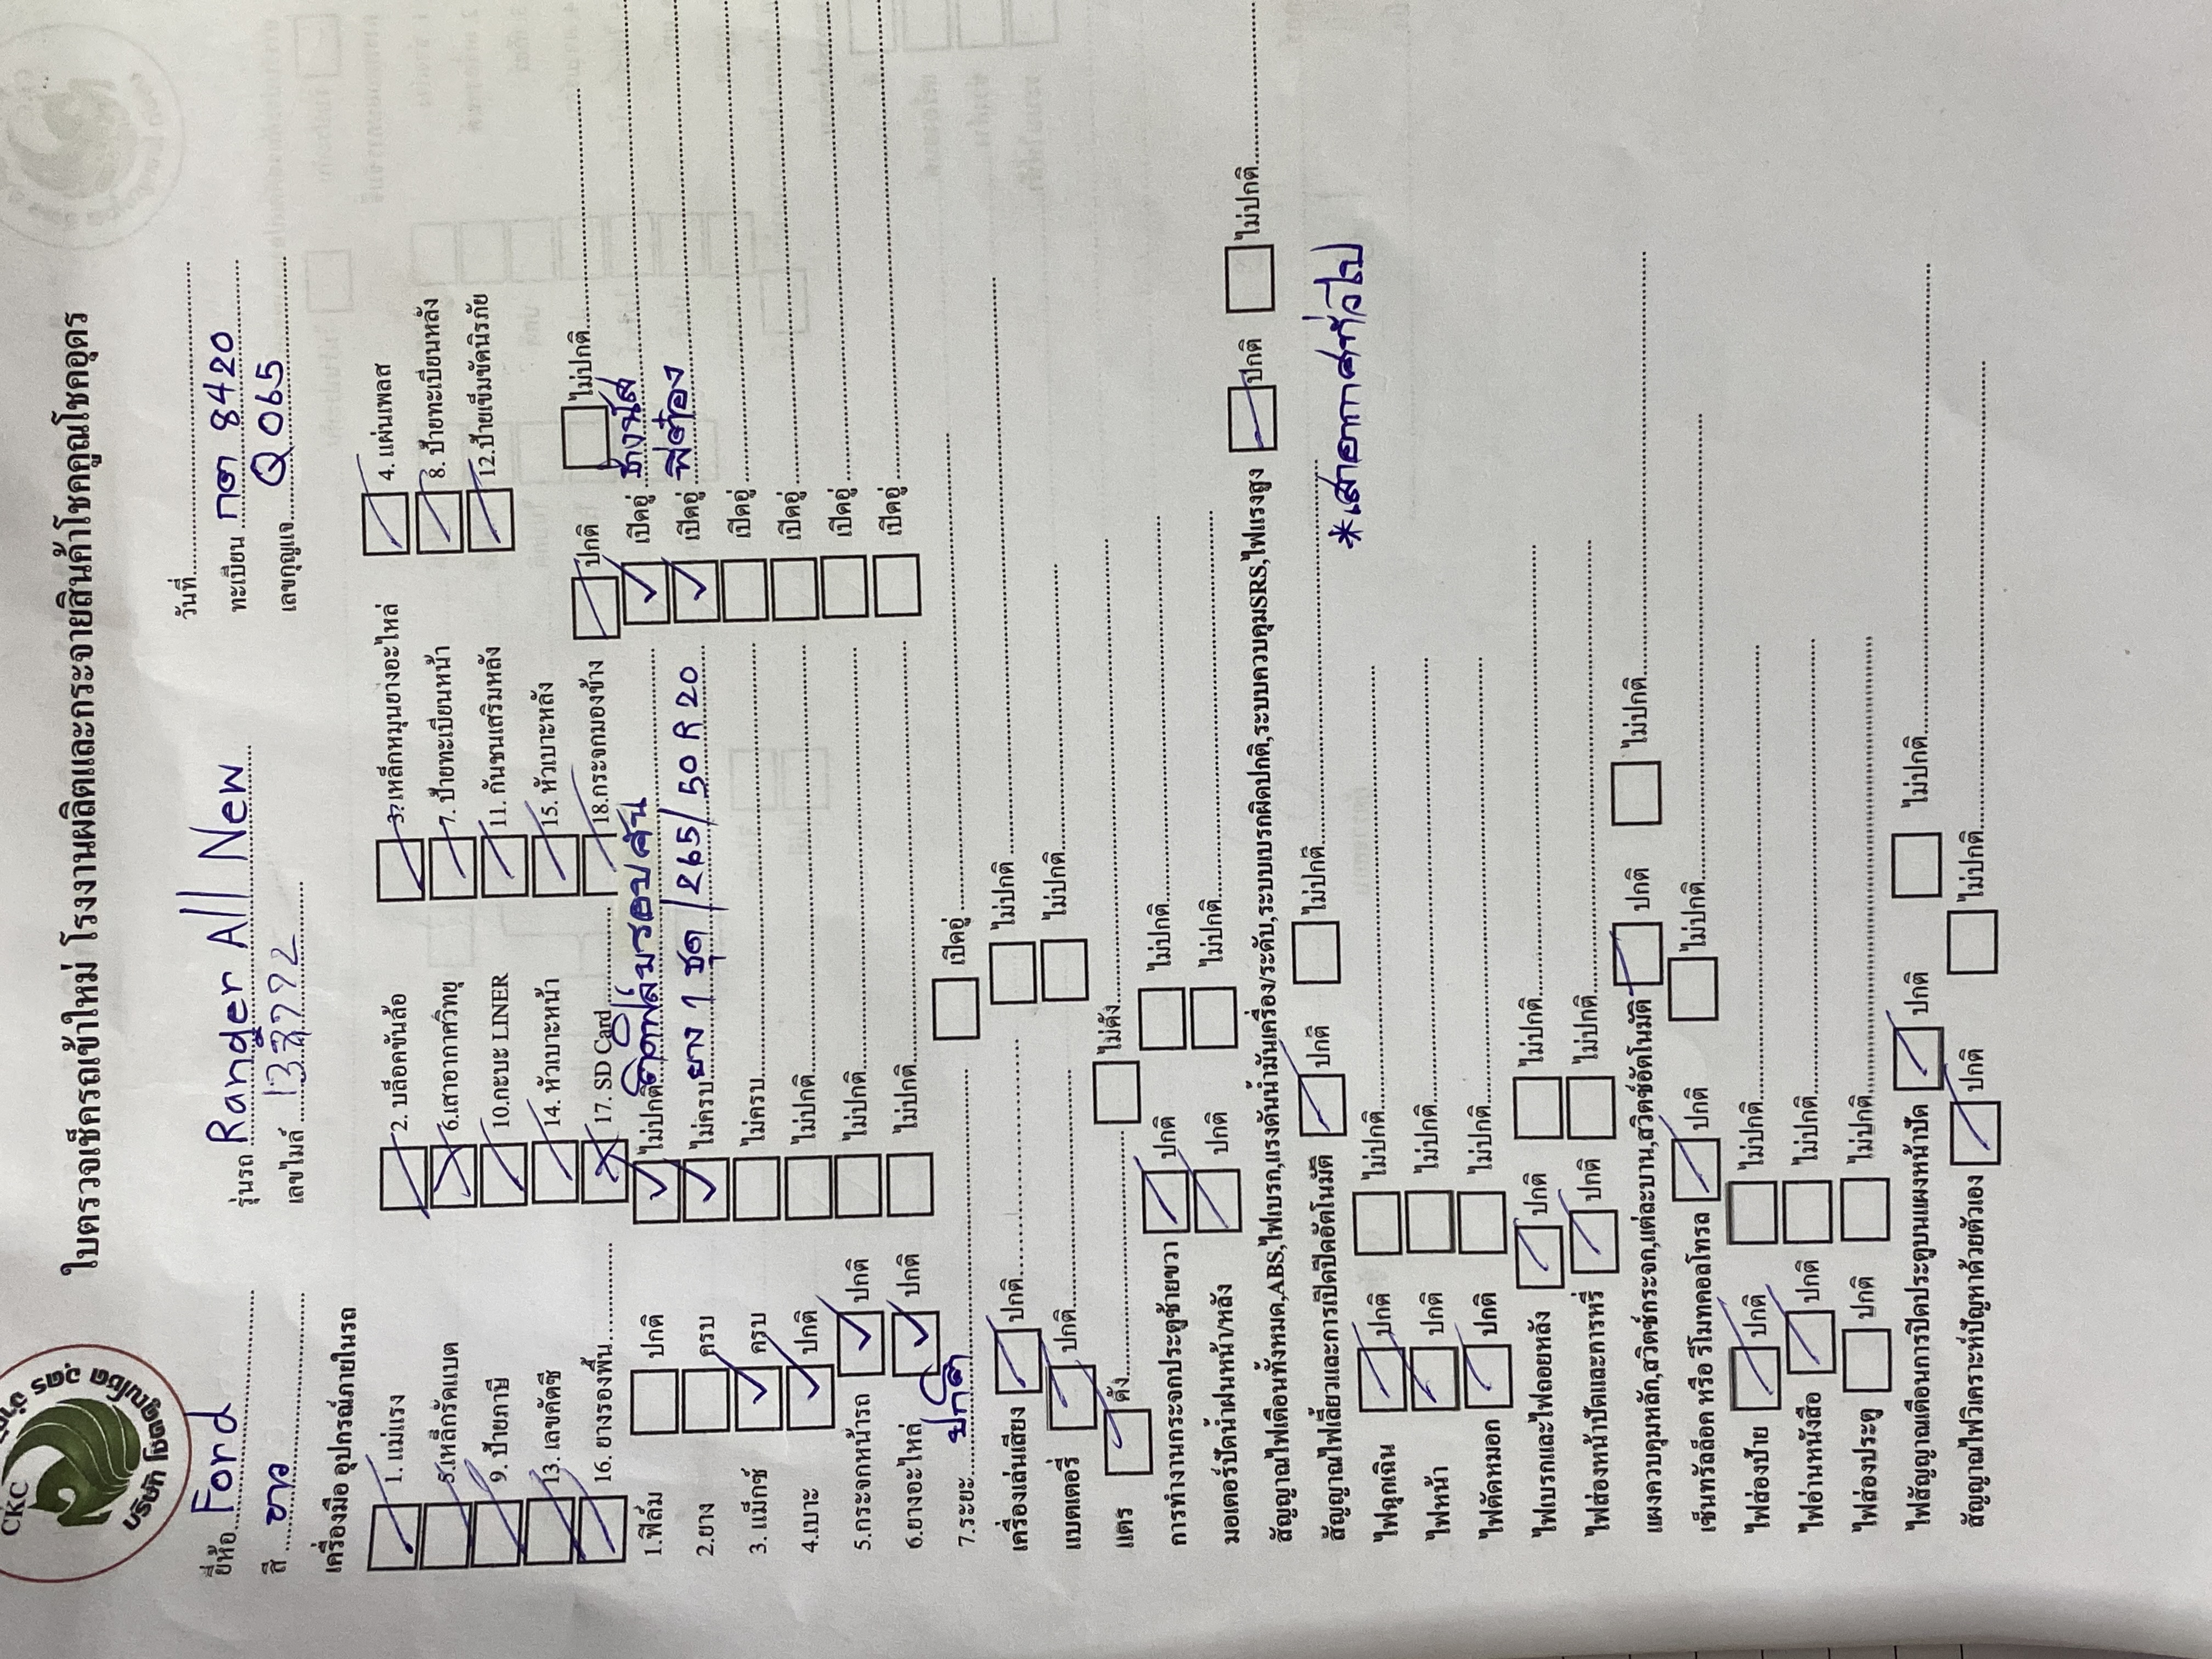 CKC
บริษัท โชคคูณโชค อุดร
ใบตรวจเช็ครถเข้าใหม่ โรงงานผลิตและกระจายสินค้าโชคคูณโชคอุดร
วันที่
ยี่ห้อ Ford รุ่นรถ Ranger All New ทะเบียน กต 8420
สี ขาว เลขไมล์ เลขกุญแจ Q065
เครื่องมือ อุปกรณ์ภายในรถ
1. แม่แรง 2. บล็อคขันล้อ 3. เหล็กหมุนยางอะไหล่ 4. แผ่นเพลส
5. เหล็กรัดแบต 6. เสาอากาศวิทยุ 7. ป้ายทะเบียนหน้า 8. ป้ายทะเบียนหลัง
9. ป้ายภาษี 10. กะบะ LINER 11. กันชนเสริมหลัง 12. ป้ายเข็มขัดนิรภัย
13. เลขคัตซี 14. หัวเบาะหน้า 15. หัวเบาะหลัง
16. ยางรองพื้น 17. SD Card 18. กระจกมองข้าง ปกติ ไม่ปกติ
1. ฟิล์ม ปกติ ไม่ปกติ ติดฟิล์มรอบคัน เปิดอู่
2. ยาง ครบ ไม่ครบ ยาง 1 ชุด / 265/50 R 20 เปิดอู่
3. แม็กซ์ ครบ ไม่ครบ เปิดอู่
4. เบาะ ปกติ ไม่ปกติ เปิดอู่
5. กระจกหน้ารถ ปกติ ไม่ปกติ เปิดอู่
6. ยางอะไหล่ ปกติ ไม่ปกติ เปิดอู่
7. ระยะ ปกติ เปิดอู่
เครื่องเล่นเสียง ปกติ ไม่ปกติ
แบตเตอรี่ ปกติ ไม่ปกติ
แตร ดัง ไม่ดัง
การทำงานกระจกประตูซ้ายขวา ปกติ ไม่ปกติ
มอเตอร์ปัดน้ำฝนหน้า/หลัง ปกติ ไม่ปกติ
สัญญาณไฟเตือนทั้งหมด,ABS,ไฟเบรก,แรงดันน้ำมันเครื่อง/ระดับ,ระบบเบรกผิดปกติ,ระบบควบคุมSRS,ไฟแรงสูง ปกติ ไม่ปกติ
สัญญาณไฟเลี้ยวและการเปิดปิดอัตโนมัติ ปกติ ไม่ปกติ
*เสาอากาศทั่วไป
ไฟฉุกเฉิน ปกติ ไม่ปกติ
ไฟหน้า ปกติ ไม่ปกติ
ไฟตัดหมอก ปกติ ไม่ปกติ
ไฟเบรกและไฟถอยหลัง ปกติ ไม่ปกติ
ไฟส่องหน้าปัดและการหรี่ ปกติ ไม่ปกติ
แผงควบคุมหลัก,สวิตช์กระจก,แต่ละบาน,สวิตช์อัตโนมัติ ปกติ ไม่ปกติ
เซ็นทรัลล็อค หรือ รีโมทคอลโทรล ปกติ ไม่ปกติ
ไฟส่องป้าย ปกติ ไม่ปกติ
ไฟอ่านหนังสือ ปกติ ไม่ปกติ
ไฟส่องประตู ปกติ ไม่ปกติ
ไฟสัญญาณเตือนการปิดประตูบนแผงหน้าปัด ปกติ ไม่ปกติ
สัญญาณไฟวิเคราะห์ปัญหาด้วยตัวเอง ปกติ ไม่ปกติ